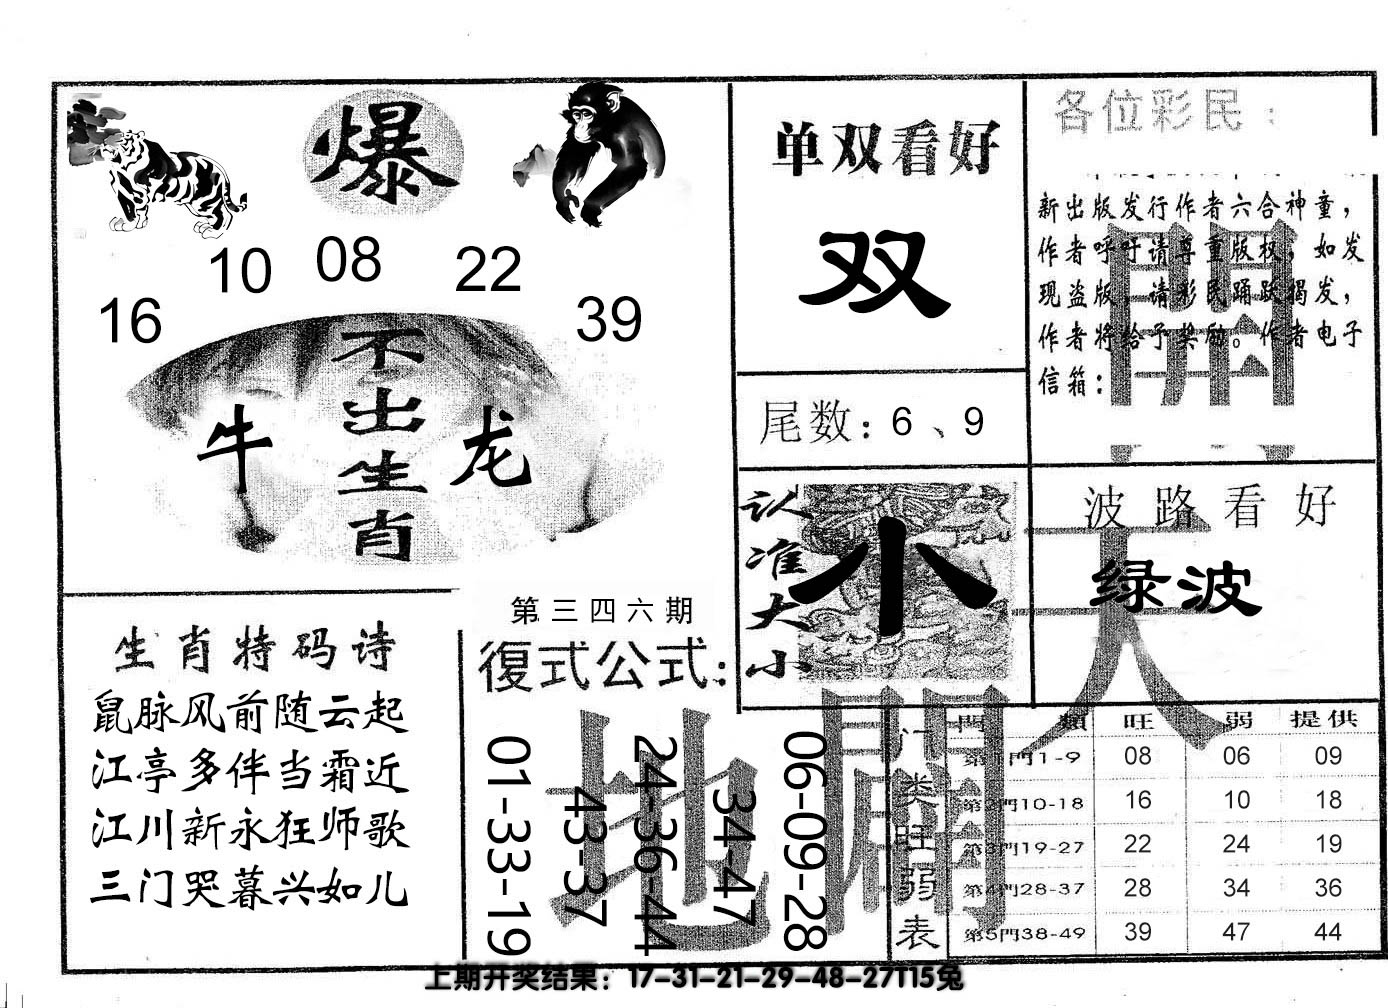 爆
10 08 22
16 39
不出生肖
牛 龙
单双看好
双
尾数：6、9
认准大小
小
各位彩民：
新出版发行作者六合神童，
作者呼吁请尊重版权，如发
现盗版，请彩民踊跃揭发，
作者将给予奖励。作者电子
信箱：
開
天
波路看好
绿波
生肖特码诗
鼠脉风前随云起
江亭多伴当霜近
江川新永狂师歌
三门哭暮兴如儿
第三四六期
復式公式：
01-33-19
43-37
24-36-44
34-47
06-09-28
地
门类旺弱表
門 類 旺 弱 提供
第1門1-9 08 06 09
第2門10-18 16 10 18
第3門19-27 22 24 19
第4門28-37 28 34 36
第5門38-49 39 47 44
上期开奖结果：17-31-21-29-48-27T15兔